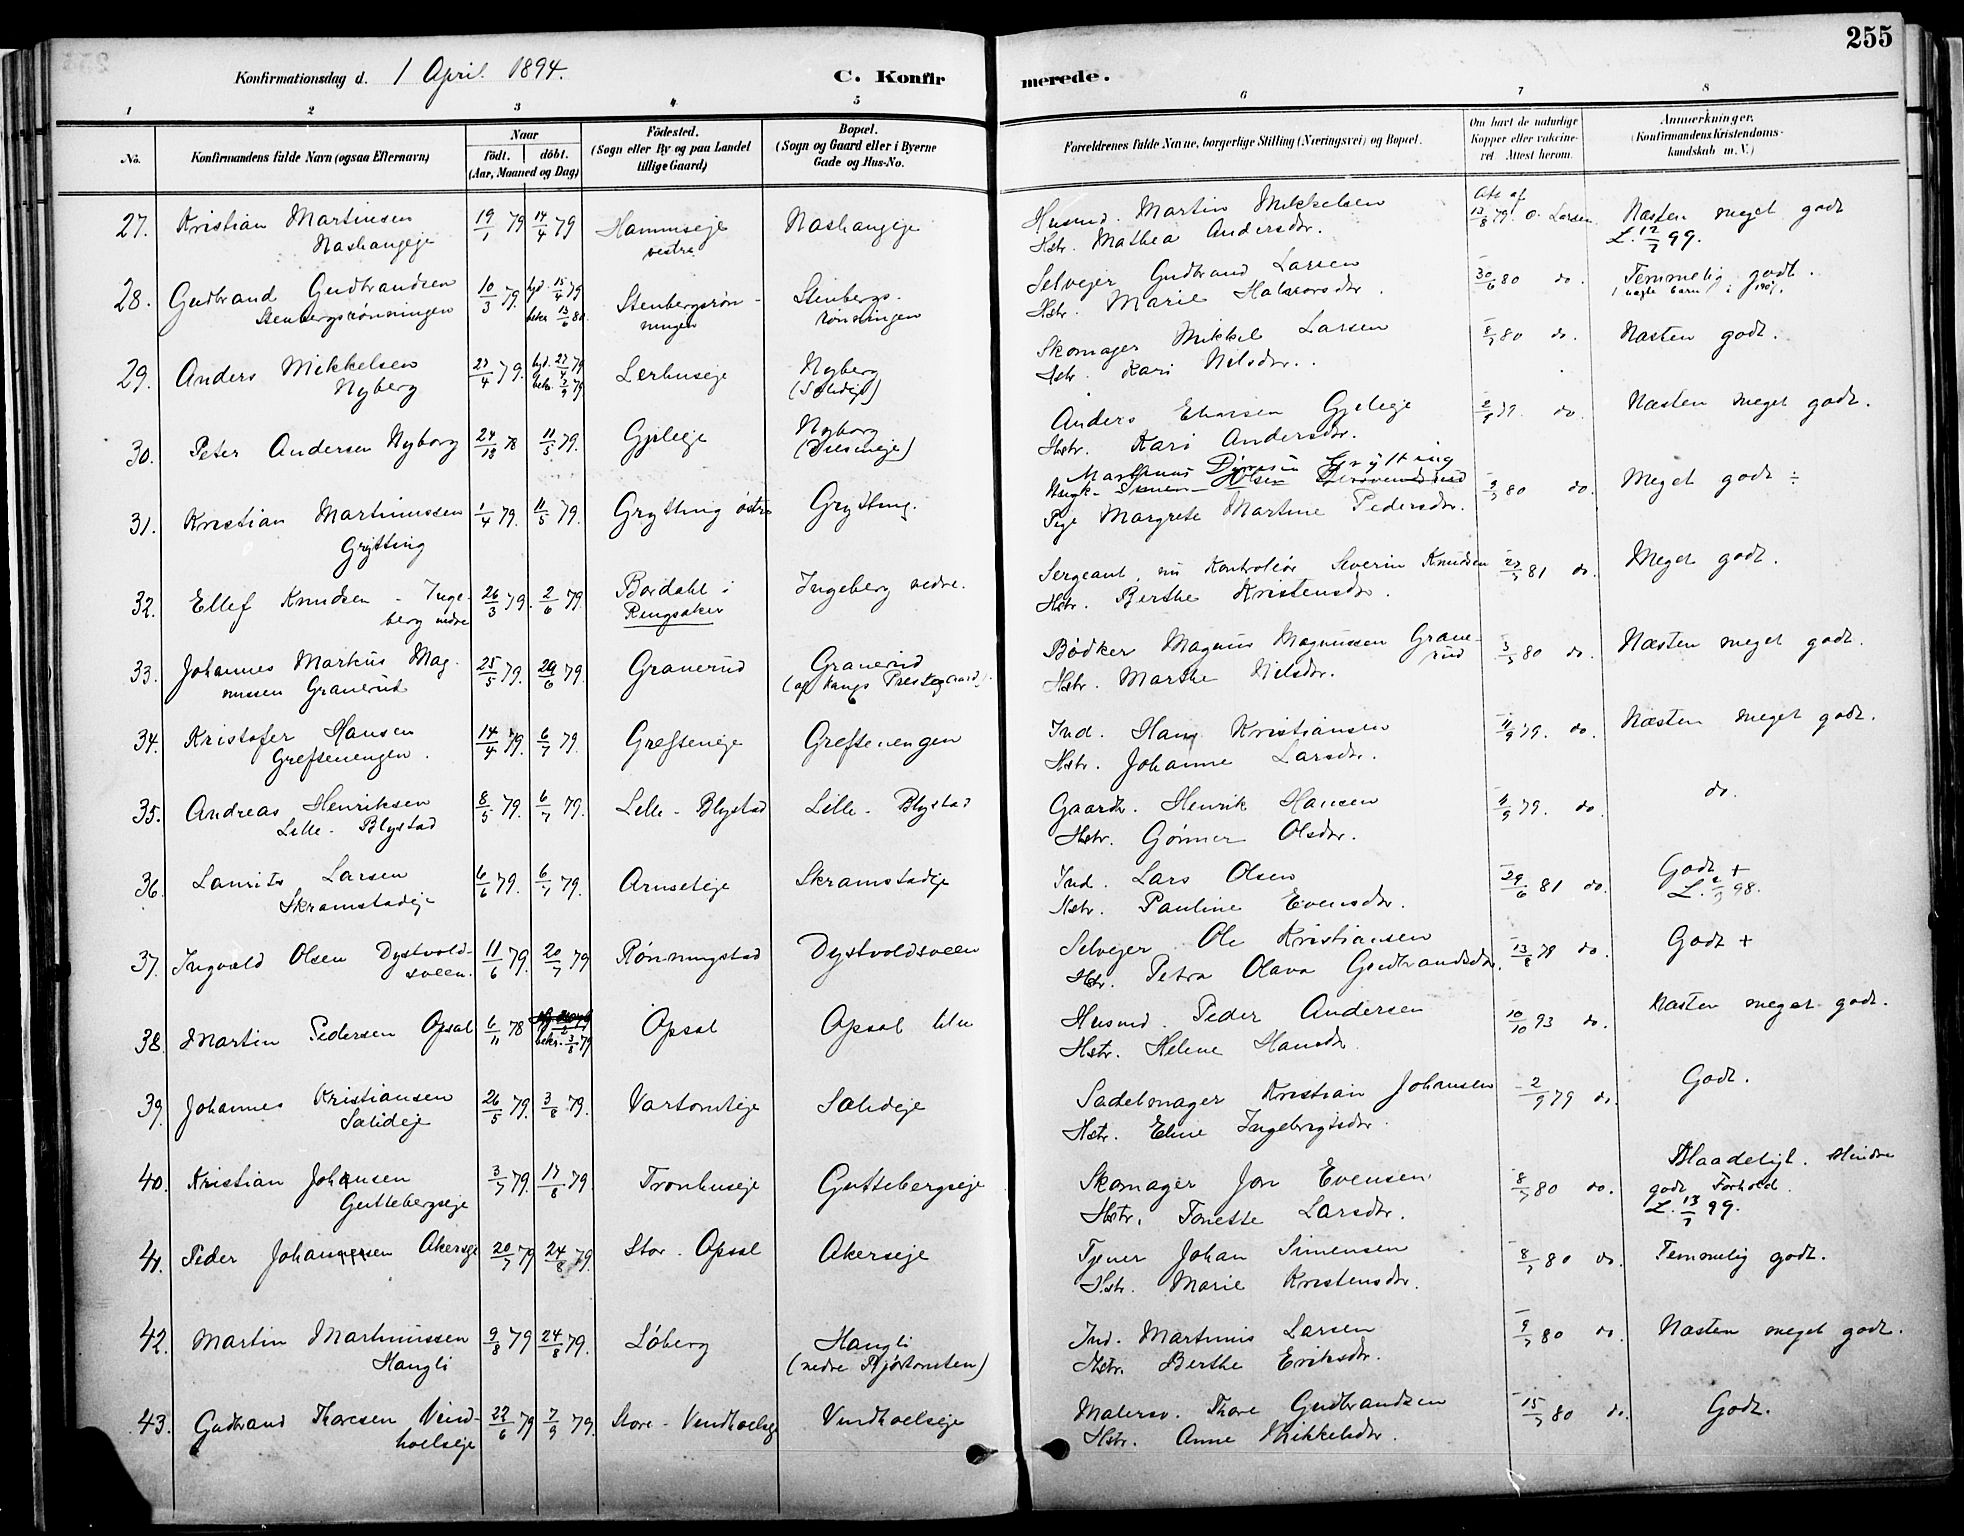 255
Konfirmationsdag d. 1 April 1894.
C. Konfirmerede.
1 2 3 4 5 6 7 8
No.
Konfirmandens fulde Navn (ogsaa Efternavn)
Naar
født. | døbt.
(Aar, Maaned og Dag)
Fødested.
(Sogn eller By og paa Landet
tillige Gaard)
Bopæl.
(Sogn og Gaard eller i Byerne
Gade og Hus-No.
Forældrenes fulde Navne, borgerlige Stilling (Næringsvei) og Bopæl.
Om havt de naturlige
Kopper eller vaccine-
ret Attest herom.
Anmærkninger.
(Konfirmandens Kristendoms-
kundskab m. V.)
27. Kristian Martinsen 19/1 79 14/4 79 Hammseje Nashangeje Husmd. Martin Mikkelsen Att. af 13/8 79 O. Larsen Næsten meget godt
Nashangeje vestre Hstr. Mathea Andersdr. L. 12/7 99.
28. Gudbrand Gudbrandsen 10/3 79. hjd. 15/4 79 Stenbergsrøn- Stenbergs- Selvejer Gudbrand Larsen 30/6 80 do. Temmelig godt.
Stenbergsrønningen bekr. 13/6 80 ningen rønningen Hstr. Marie Halvorsdr.
29. Anders Mikkelsen 27/4 79. hjd. 27/4 79 Lerhuseje Nyberg Skomager Mikkel Larsen 8/7 80 do. Næsten godt.
Nyberg bekr. 7/9 79 Hstr. Kari Nilsdr.
30. Peter Andersen Nyborg 24/12 78 11/5 79. Gjileje Nyborg Anders Gjileje 2/9 79. do. Næsten meget godt.
Hstr. Kari Andersdr.
31. Kristian Martinussen 1/4 79. 11/5 79. Grytting østre Grytting. Martinus Grytting 80 do. Meget godt ÷
Grytting Pige Margrete Martine Pedersdr.
32. Ellef Knudsen - Inge- 26/3 79. 2/6 79. Bordahl i Ingeberg nedre. Sergeant, nu Kontrollør Severin Knudsen 27/7 81 do. Meget godt.
berg nedre Ringsaker Hstr. Berthe Kristensdr.
33. Johannes Markus Mag- 25/5 79. 29/6 79. Granerud Granerud Bødker Magnus Magnussen Grane- 80 do. Næsten meget godt.
nussen Granerud (af Vangs Prestegaard). rud Hstr. Marthe Nilsdr.
34. Kristofer Hansen 14/4 79. 6/7 79. Grefseneje Grefsenengen Ind. Hans Kristiansen 11/9 79. do. Næsten meget godt.
Grefsenengen. Hstr. Johanne Larsdr.
35. Andreas Henriksen 8/5 79. 6/7 79. Lille-Blystad Lille-Blystad Gaardb. Henrik Hansen 11/9 79. do do.
Lille-Blystad Hstr. Gønner Olsdr.
36. Laurits Larsen 6/6 79. 6/7 79. Arneseteje Skramstadeje Ind. Lars Olsen 29/6 81 do. Godt +
Skramstadeje Hstr. Pauline Evensdr. L. 98.
37. Ingvald Olsen Dystvold- 11/6 79. 20/7 79 Rønningstad Dystvoldsveen Selvejer Ole Kristiansen 13/8 79 do. Godt +
sveen. Hstr. Petra Olava Gudbrandsdr.
38. Martin Pedersen Opsal 6/11 78 bekr. 3/8 79 Opsal Opsal lille Husmd. Peder Andersen 10/10 93 do. Næsten meget godt.
Hstr. Helene Hansdr.
39. Johannes Kristiansen 26/5 79. 3/8 79. Vartomteje Salideje Sadelmager Kristian Johansen 2/9 79 do. Godt.
Salideje Hstr. Eline Ingebrigtsdr.
40. Kristian Johansen 3/7 79. 17/8 79. Tronhuseje Guttebergseje Skomager Jon Evensen 8/7 80 do. Maadeligt. Mindre
Guttebergseje Hstr. Tonette Larsdr. godt Forhold.
L. 13/7 99.
41. Peder Johannesen Akerseje 20/7 79 24/8 79. Stor-Opsal Akerseje Tjener Johan Simensen 8/7 80 do. Temmelig godt.
Hstr. Marie Kristensdr.
42. Martin Martinussen 9/8 79 24/8 79. Løberg Haugli Ind. Martinus Larsen 9/7 80 do. Næsten meget godt.
Haugli (nedre Bjørtomten) Hstr. Berthe Eriksdr.
43. Gudbrand Thoresen Vind- 22/6 79 7/9 79. Store-Vindhoelseje Vindhoelseje Malersv. Thore Gudbrandsen 15/7 80 do. Godt.
hoelseje Hstr. Anne Mikkelsdr.